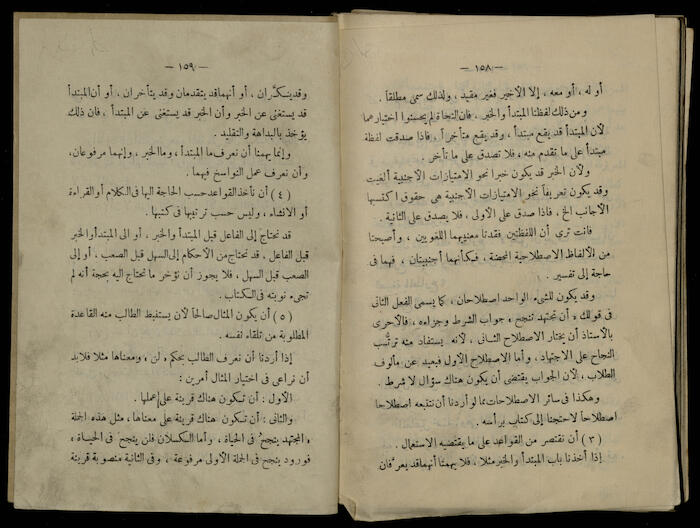 — ١٥٨ —
أو له ، أو معه ، إلا الأخير فغير مقيد ، ولذلك سمى مطلقاً .
ومن ذلك لفظتا المبتدأ والخبر ، فان النحاة لم يحسنوا اختيارهما
لأن المبتدأ قد يقع مبتدأ ، وقد يقع متأخراً ، فاذا صدقت لفظة
مبتدأ على ما تقدم منه ، فلا تصدق على ما تأخر .
ولأن الخبر قد يكون خبرا نحو الامتيازات الأجنبية ألغيت
وقد يكون تعريفاً نحو الامتيازات الأجنبية هى حقوق اكتسبها
الأجانب الخ ، فاذا صدق على الأولى ، فلا يصدق على الثانية .
فانت ترى أن اللفظتين فقدتا معنييهما اللغويين ، وأصبحتا
من الألفاظ الاصطلاحية المحضة ، فكأنهما أجنبيتان ، فهما فى
حاجة إلى تفسير .
وقد يكون للشىء الواحد اصطلاحان ، كما يسمى الفعل الثانى
فى قولك « أن تجتهد تنجح » جواب الشرط وجزاءه ، فالأحرى
بالأستاذ أن يختار الاصطلاح الثانى ، لأنه يستفاد منه ترتُّب
النجاح على الاجتهاد ، وأما الاصطلاح الأول فبعيد عن مألوف
الطلاب ، لأن الجواب يقتضى أن يكون هناك سؤال لا شرط .
وهكذا فى سائر الاصطلاحات مما لو أردنا أن نتتبعه اصطلاحا
اصطلاحاً لاحتجنا إلى كتاب برأسه .
(٣) أن نقتصر من القواعد على ما يقتضيه الاستعمال .
إذا أخذنا باب المبتدأ والخبر مثلا ، فلا يهمنا أنهما قد يعرَّفان
— ١٥٩ —
وقد ينكَّران ، أو أنهما قد يتقدمان وقد يتأخران ، أو أن المبتدأ
قد يستغنى عن الخبر وأن الخبر قد يستغنى عن المبتدأ ، فان ذلك
يؤخذ بالبداهة والتقليد .
وإنما يهمنا أن نعرف ما المبتدأ ، وما الخبر ، وإنهما مرفوعان ،
وأن نعرف عمل النواسخ فيهما .
(٤) أن نأخذ القواعد حسب الحاجة اليها فى الكلام أو القراءة
أو الانشاء ، وليس حسب ترتيبها فى كتبها .
قد نحتاج إلى الفاعل قبل المبتدأ والخبر ، أو الى المبتدأ والخبر
قبل الفاعل . قد نحتاج من الأحكام إلى السهل قبل الصعب ، أو إلى
الصعب قبل السهل ، فلا يجوز أن نؤخر ما نحتاج اليه بحجة أنه لم
تجىء نوبته فى الكتاب .
(٥) أن يكون المثال صالحاً لأن يستنبط الطالب منه القاعدة
المطلوبة من تلقاء نفسه .
إذا أردنا أن نعرف الطالب بحكم « لن » ومعناها مثلا فلا بد
أن نراعى فى اختيار المثال أمرين :
الأول : أن تكون هناك قرينة على عملها .
والثانى : أن تكون هناك قرينة على معناها ، مثل هذه الجملة
« المجتهد ينجحُ فى الحياة ، وأما الكسلان فلن ينجحَ فى الحياة »
فورود ينجح فى الجملة الأولى مرفوعة ، وفى الثانية منصوبة قرينة